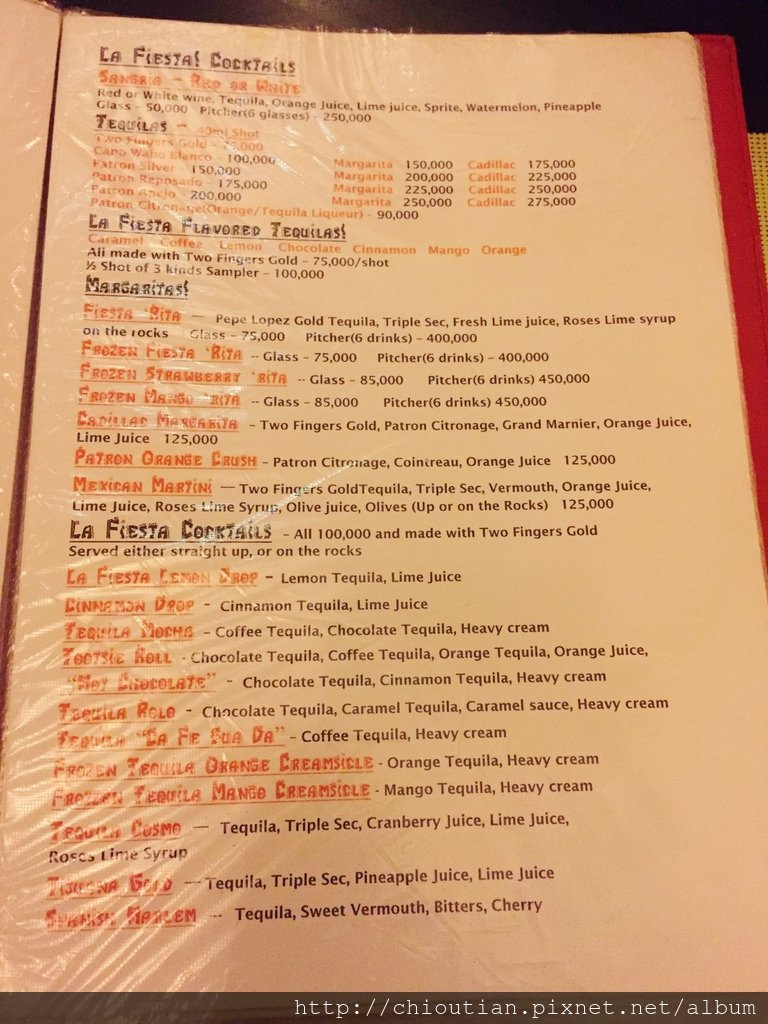 La Fiesta! Cocktails
Sangria - Red or White
Red or White wine, Tequila, Orange Juice, Lime juice, Sprite, Watermelon, Pineapple
Glass - 50,000 Pitcher(6 glasses) - 250,000
Tequilas - 40ml Shot
Two Fingers Gold - 70,000
Cabo Wabo Blanco - 100,000 Margarita 150,000 Cadillac 175,000
Patron Silver 150,000 Margarita 200,000 Cadillac 225,000
Patron Reposado - 175,000 Margarita 225,000 Cadillac 250,000
Patron Anejo - 200,000 Margarita 250,000 Cadillac 275,000
Patron Citronage(Orange/Tequila Liqueur) - 90,000
La Fiesta Flavored Tequilas!
Caramel Coffee Lemon Chocolate Cinnamon Mango Orange
All made with Two Fingers Gold - 75,000/shot
½ Shot of 3 kinds Sampler - 100,000
Margaritas!
Fiesta 'Rita — Pepe Lopez Gold Tequila, Triple Sec, Fresh Lime juice, Roses Lime syrup
on the rocks Glass - 75,000 Pitcher(6 drinks) - 400,000
Frozen Fiesta 'Rita -- Glass - 75,000 Pitcher(6 drinks) - 400,000
Frozen Strawberry 'rita -- Glass - 85,000 Pitcher(6 drinks) 450,000
Frozen Mango 'rita -- Glass - 85,000 Pitcher(6 drinks) 450,000
Cadillac Margarita - Two Fingers Gold, Patron Citronage, Grand Marnier, Orange Juice,
Lime Juice 125,000
Patron Orange Crush - Patron Citronage, Cointreau, Orange Juice 125,000
Mexican Martini — Two Fingers GoldTequila, Triple Sec, Vermouth, Orange Juice,
Lime Juice, Roses Lime Syrup, Olive juice, Olives (Up or on the Rocks) 125,000
La Fiesta Cocktails - All 100,000 and made with Two Fingers Gold
Served either straight up, or on the rocks
La Fiesta Lemon Drop - Lemon Tequila, Lime Juice
Cinnamon Drop - Cinnamon Tequila, Lime Juice
Tequila Mocha - Coffee Tequila, Chocolate Tequila, Heavy cream
Tootsie Roll - Chocolate Tequila, Coffee Tequila, Orange Tequila, Orange Juice,
"Hot Chocolate" - Chocolate Tequila, Cinnamon Tequila, Heavy cream
Tequila Rolo - Chocolate Tequila, Caramel Tequila, Caramel sauce, Heavy cream
Tequila "Ca Fe Sua Da" - Coffee Tequila, Heavy cream
Frozen Tequila Orange Creamsicle - Orange Tequila, Heavy cream
Frozen Tequila Mango Creamsicle - Mango Tequila, Heavy cream
Tequila Cosmo — Tequila, Triple Sec, Cranberry Juice, Lime Juice,
Roses Lime Syrup
Tijuana Gold — Tequila, Triple Sec, Pineapple Juice, Lime Juice
Spanish Harlem -- Tequila, Sweet Vermouth, Bitters, Cherry
http://chioutian.pixnet.net/album